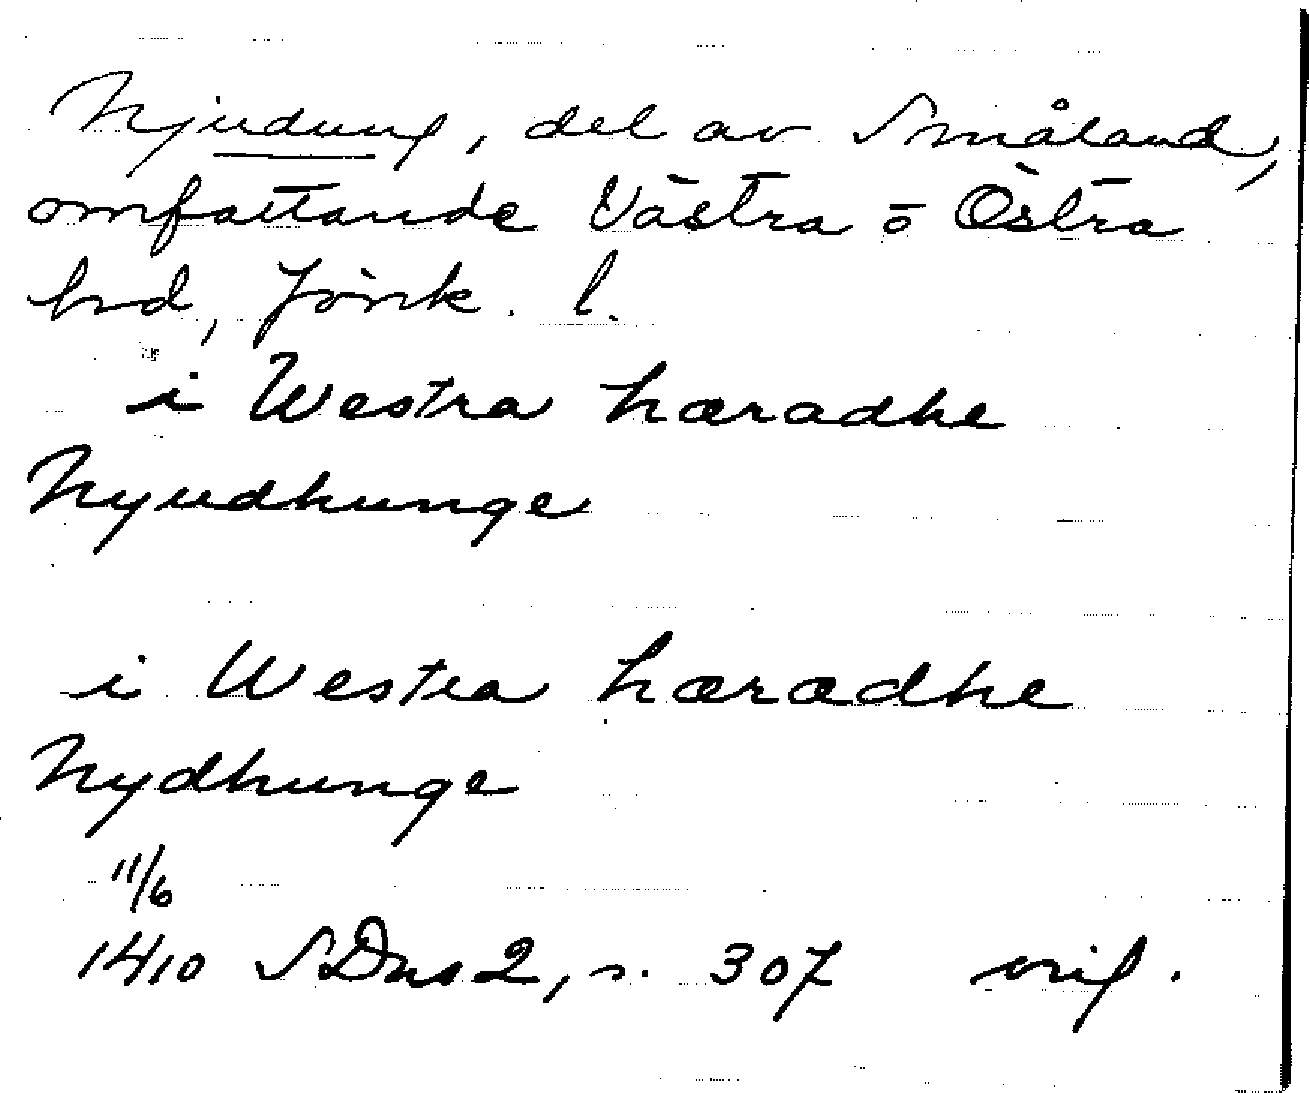 Njudung, del av Småland,
omfattande Västra o Östra
hrd, Jönk. l.
i Westra hæradhe
Nyudhunge
i Westra hærædhe
Nydhunge
11/6
1410 SDns 2, s. 307 orig.